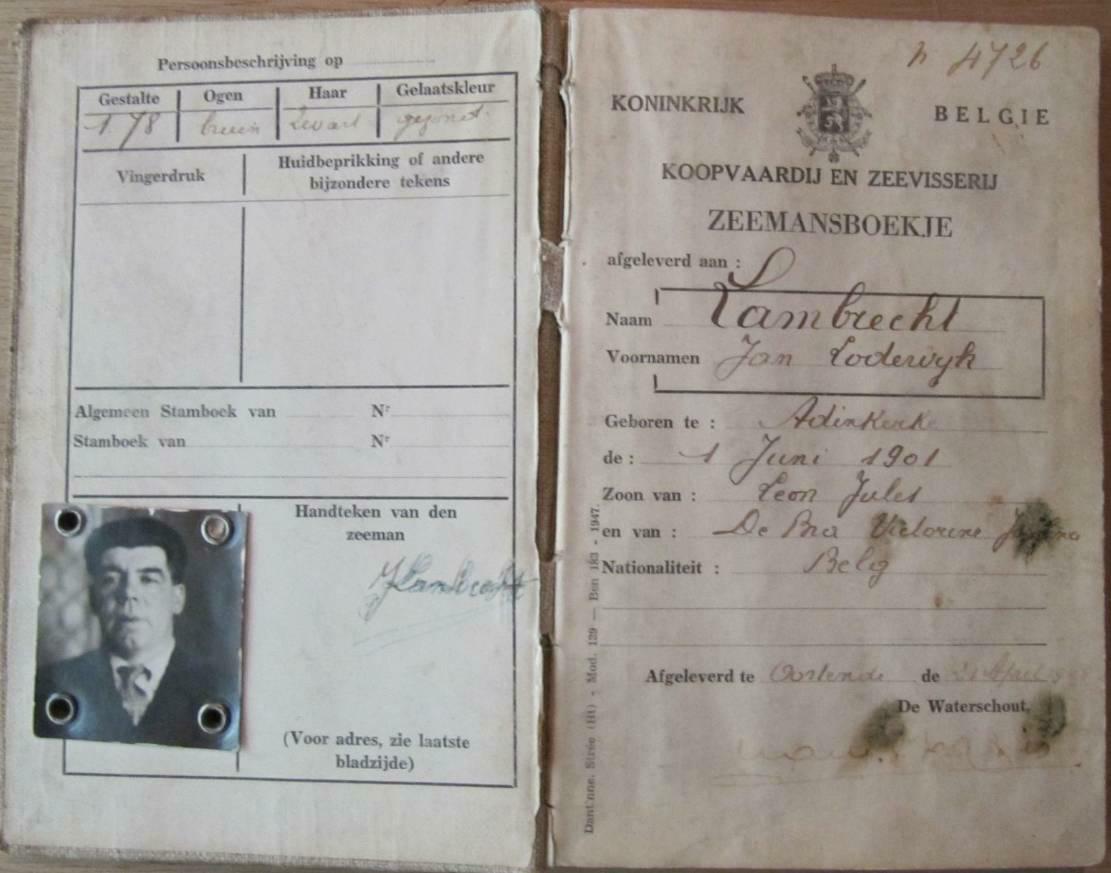 Persoonsbeschrijving op
Gestalte Ogen Haar Gelaatskleur
1 78 bruin Zwart gezond
Vingerdruk Huidbeprikking of andere
bijzondere tekens
Algemeen Stamboek van Nr
Stamboek van Nr
Handteken van den
zeeman
JLambrecht
(Voor adres, zie laatste
bladzijde)
N 4726
KONINKRIJK BELGIE
KOOPVAARDIJ EN ZEEVISSERIJ
ZEEMANSBOEKJE
afgeleverd aan :
Naam Lambrecht
Voornamen Jan Lodewyk
Geboren te : Adinkerke
de : 1 Juni 1901
Zoon van : Leon Jules
en van : De Bra Victorine
Nationaliteit : Belg
Afgeleverd te Oostende de 21 April
De Waterschout,
Dantinne, Strée (Ht) - Mod. 129 — Ben 183 - 1947.